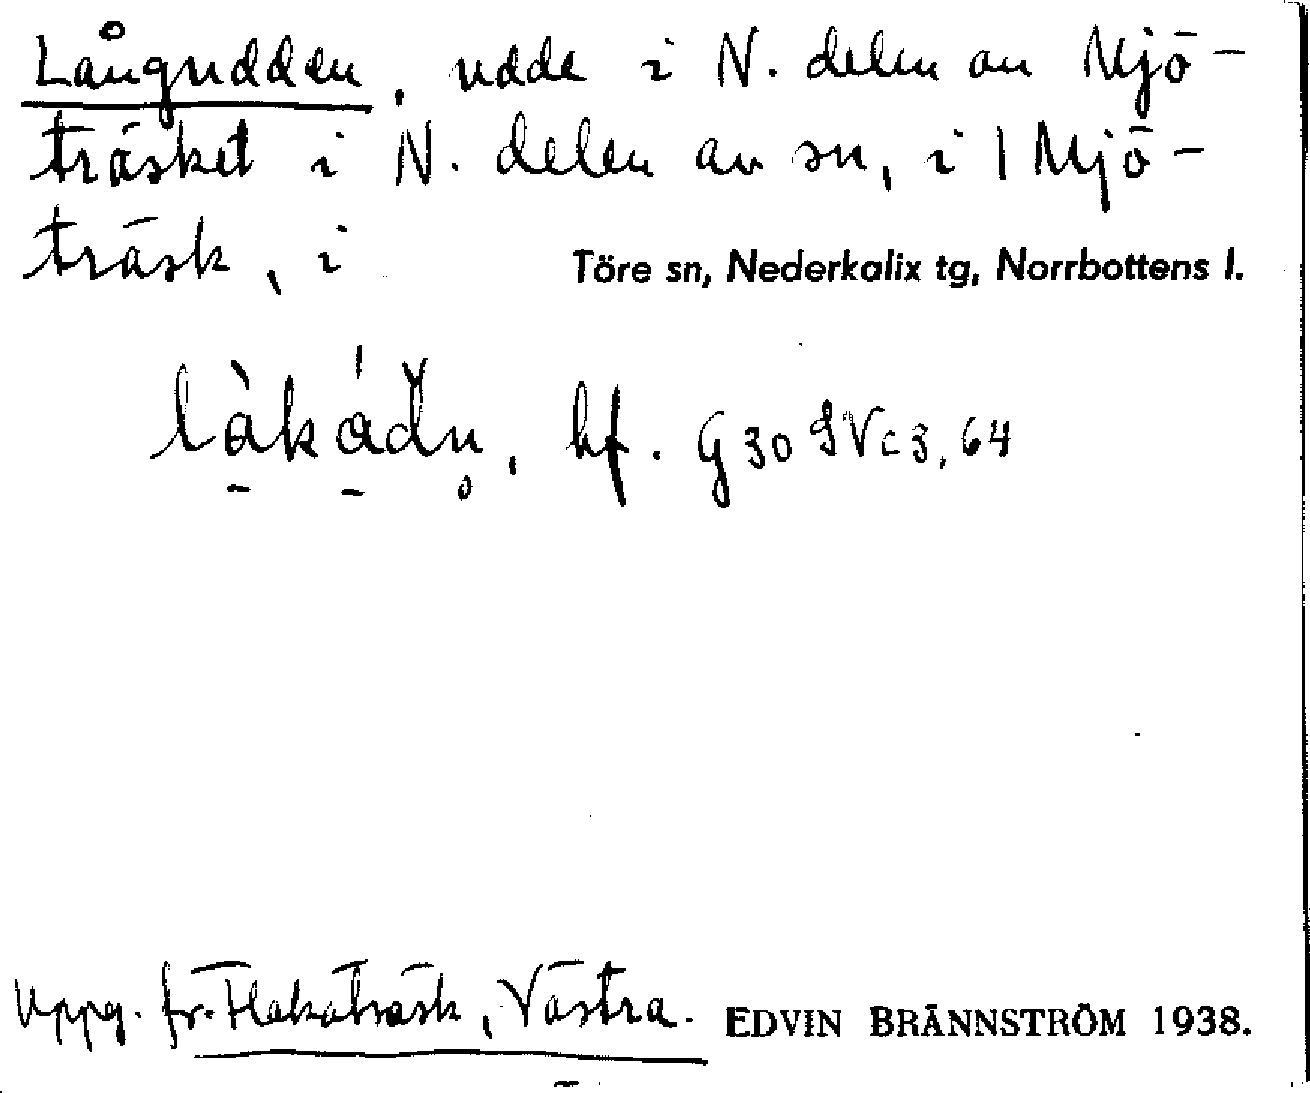 Långudden, udde i N. delen av Mjö-
träsket i N. delen av sn, i 1 Mjö-
träsk, i Töre sn, Nederkalix tg, Norrbottens l.
hf. G 30 SVc3, 64
Uppg. fr. Flakaträsk, Västra. EDVIN BRÄNNSTRÖM 1938.